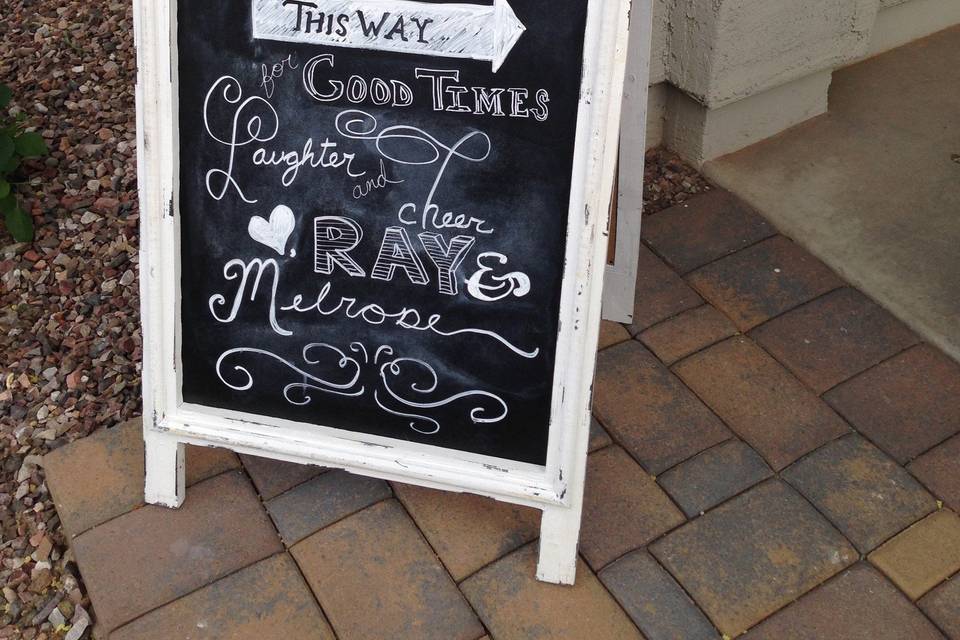 THIS WAY
for GOOD TIMES
Laughter
and
cheer
RAY &
Melrose